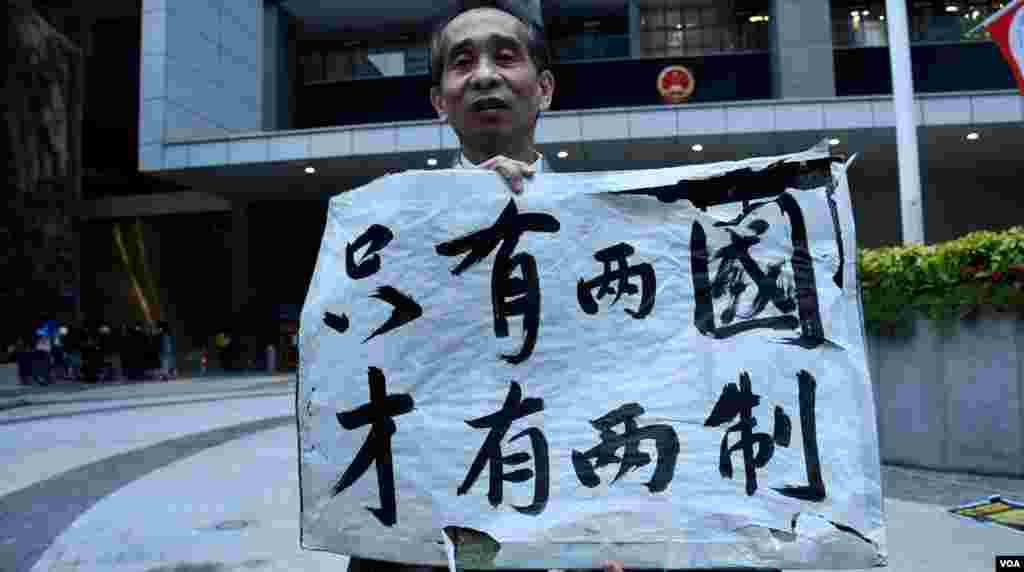 只有两國
才有两制
VOA